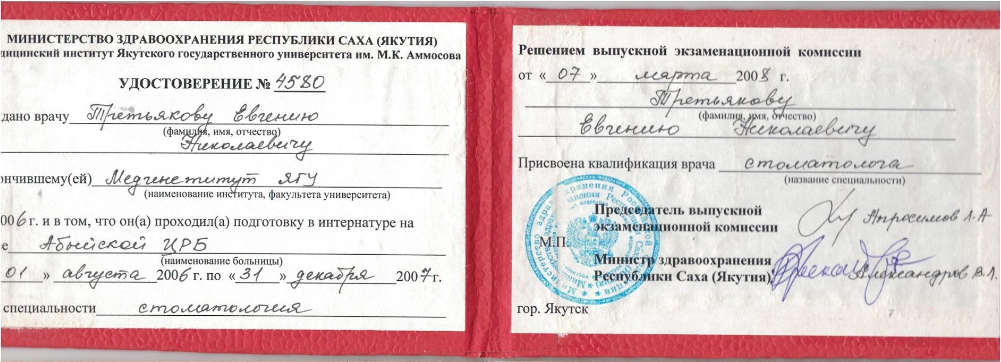 МИНИСТЕРСТВО ЗДРАВООХРАНЕНИЯ РЕСПУБЛИКИ САХА (ЯКУТИЯ)
дицинский институт Якутского государственного университета им. М.К. Аммосова
УДОСТОВЕРЕНИЕ № 4580
дано врачу Третьякову Евгению
(фамилия, имя, отчество)
Николаевичу
ончившему(ей) Мединститут ЯГУ
(наименование института, факультета университета)
006 г. и в том, что он(а) проходил(а) подготовку в интернатуре на
е Абыйской ЦРБ
(наименование больницы)
01 » августа 2006 г. по « 31 » декабря 2007 г.
специальности стоматология
Решением выпускной экзаменационной комиссии
от « 07 » марта 2008 г.
Третьякову
(фамилия, имя, отчество)
Евгению Николаевичу
Присвоена квалификация врача стоматолога
(название специальности)
Председатель выпускной
экзаменационной комиссии Апросимов Л.А
М.П.
Министр здравоохранения
Республики Саха (Якутия) Александров В.Л.
гор. Якутск